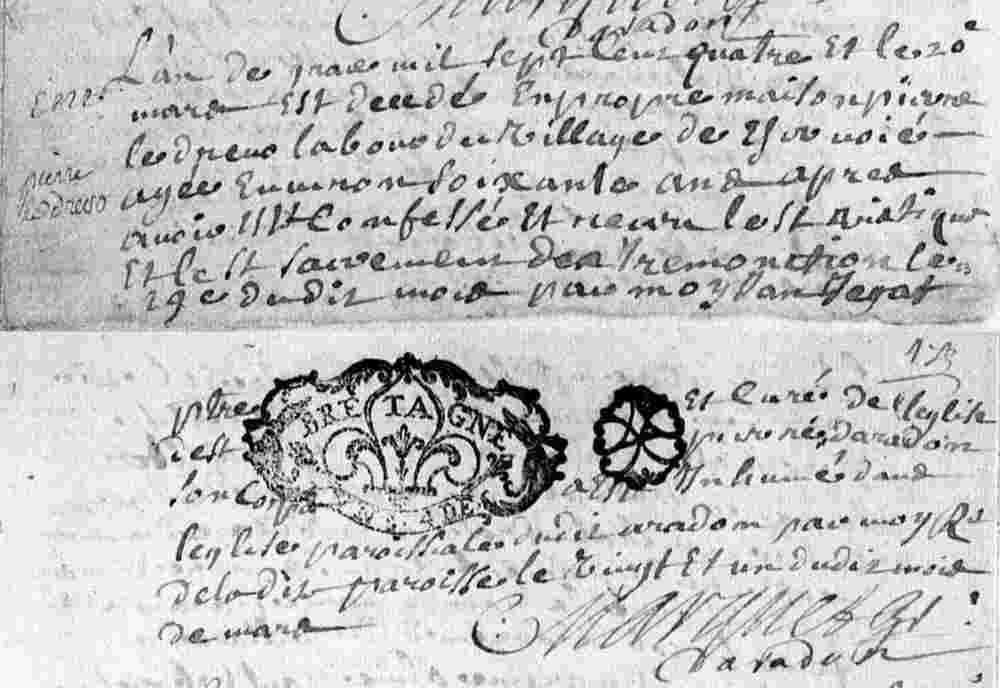 D'aradon
L'an de grace mil sept cent quatre Et le 20e
mars Est decedé En propre maison pierre
le dreus labour du Village de
agée Environ soixante ans apres
avoir Confessé Et receu le st viatique
Et le st sacrement le
19e dudit mois par moy Jan
Ent
pierre
le dreuo
ptre
Et Curé de l'eglise
de st
d'aradon
son Corps
Inhumé dans
BRETAGNE
l'eglise paroissiale dudit aradon par moy Rr
de la dit paroisse le Vingt Et un dudit mois
de mars
d'aradon